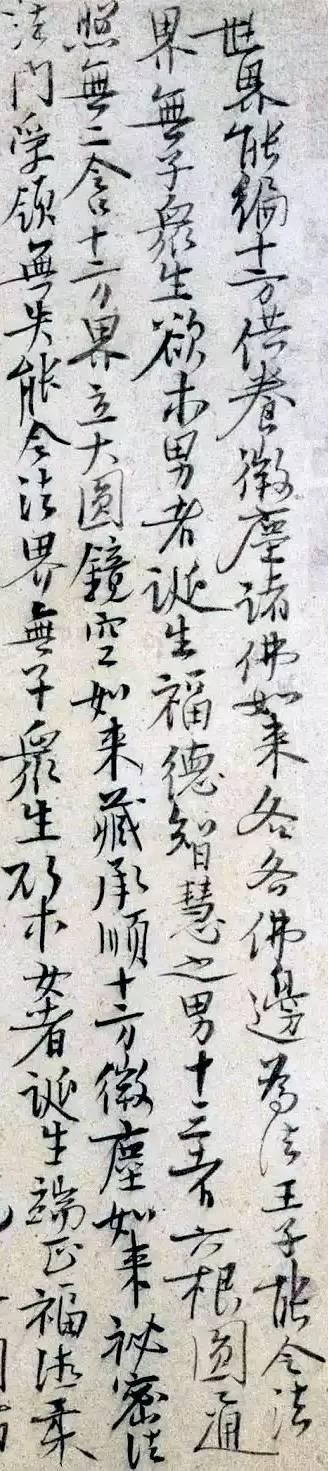 世界能徧十方供養微塵諸佛如来各各佛邊為法王子能令法
界無子眾生欲求男者誕生福德智慧之男十三者六根圓通
照無二含十方界立大圓鏡空如来藏承順十方微塵如来祕密法
法門受領無失能令法界無子眾生欲求女者誕生端正福德柔